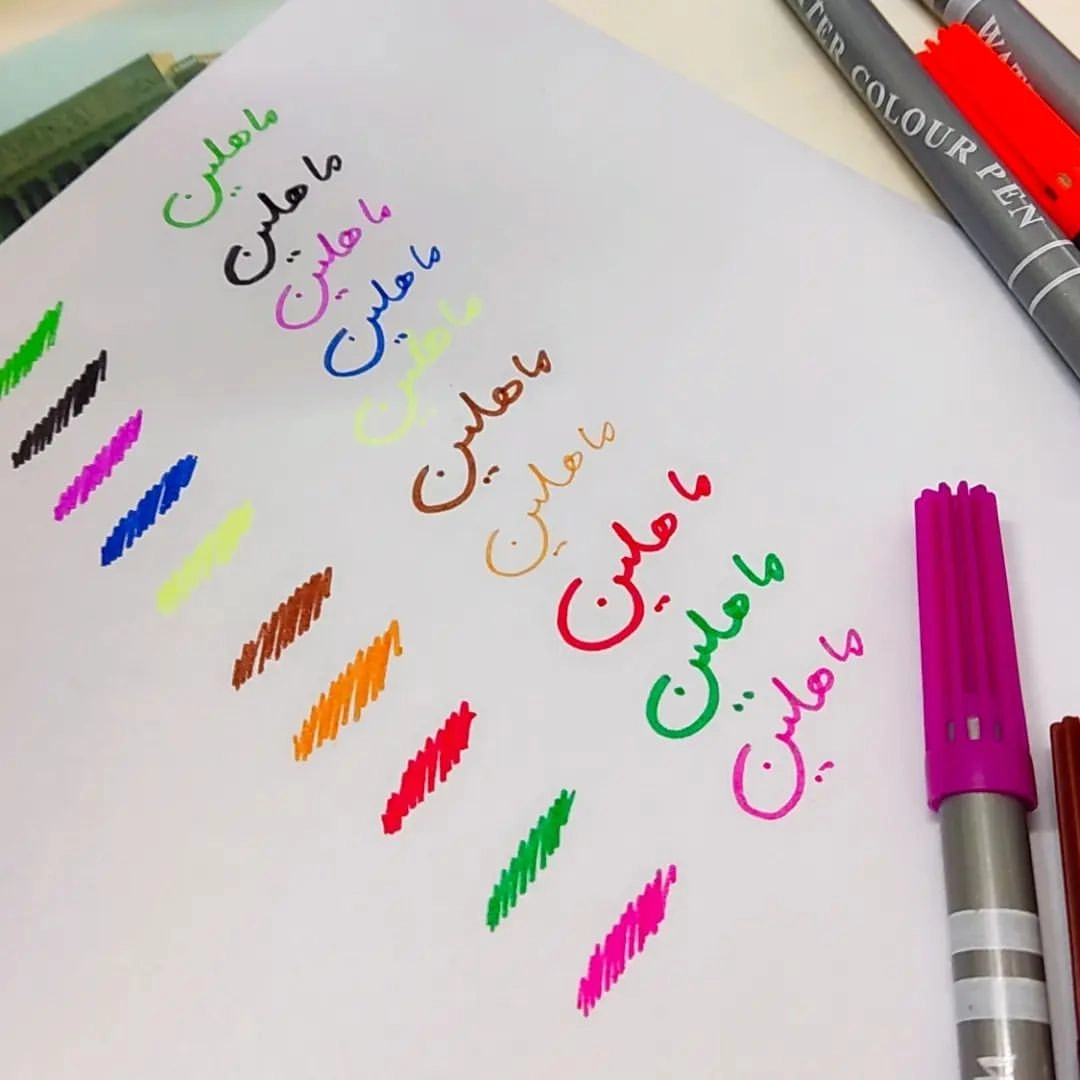 ماهلین
ماهلین
ماهلین
ماهلین
ماهلین
ماهلین
ماهلین
ماهلین
ماهلین
ماهلین
WATER COLOUR PEN